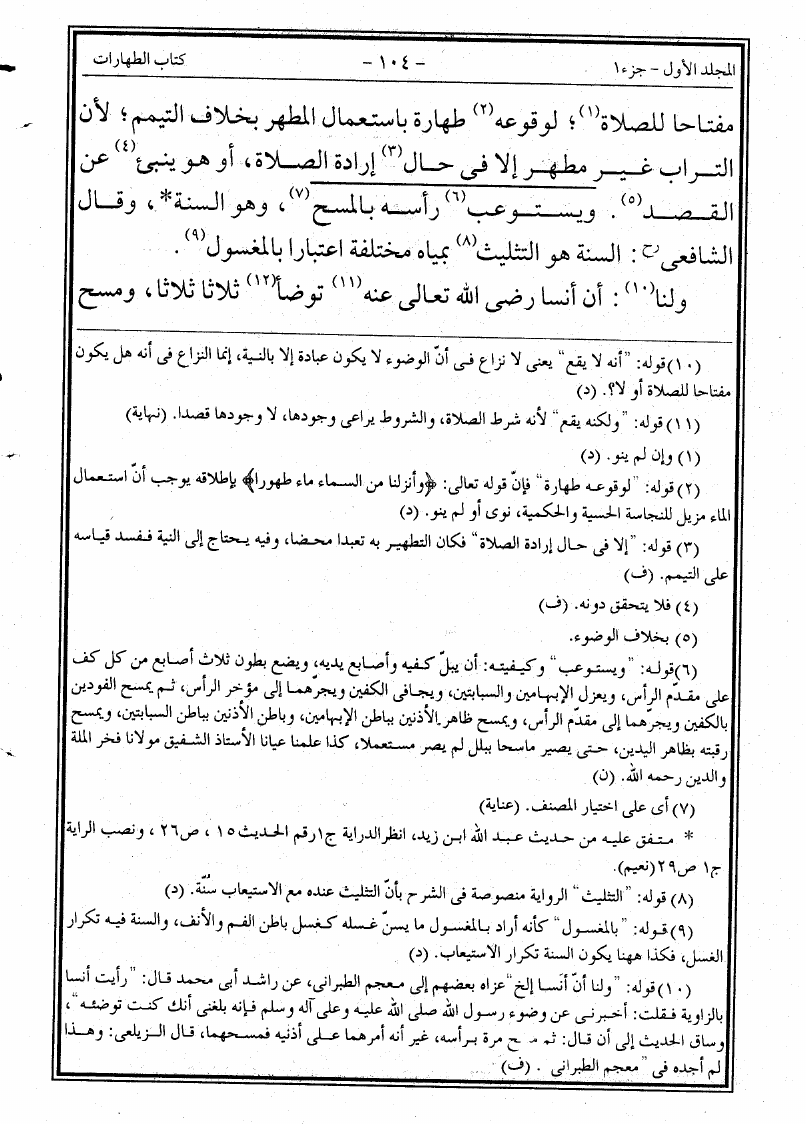 المجلد الأول – جزء١ - ١٠٤ - كتاب الطهارات
مفتاحا للصلاة(١)؛ لوقوعه(٢) طهارة باستعمال المطهر بخلاف التيمم؛ لأن
التراب غير مطهر إلا فى حال(٣) إرادة الصلاة، أو هو ينبئ(٤) عن
القصد(٥). ويستوعب(٦) رأسه بالمسح(٧)، وهو السنة*، وقال
الشافعى رح: السنة هو التثليث(٨) بمياه مختلفة اعتبارا بالمغسول(٩).
ولنا(١٠): أن أنسا رضى الله تعالى عنه(١١) توضأ(١٢) ثلاثا ثلاثا، ومسح
(١٠)قوله: ”أنه لا يقع“ يعنى لا نزاع فى أنّ الوضوء لا يكون عبادة إلا بالنية، إنما النزاع فى أنه هل يكون
مفتاحا للصلاة أو لا؟. (د)
(١١) قوله: ”ولكنه يقع“ لأنه شرط الصلاة، والشروط يراعى وجودها، لا وجودها قصدا. (نهاية)
(١) وإن لم ينو. (د)
(٢) قوله: ”لوقوعه طهارة“ فإنّ قوله تعالى: ﴿وأنزلنا من السماء ماء طهورا﴾ بإطلاقه يوجب أنّ استعمال
الماء مزيل للنجاسة الحسية والحكمية، نوى أو لم ينو. (د)
(٣) قوله: ”إلا فى حال إرادة الصلاة“ فكان التطهير به تعبدا محضا، وفيه يحتاج إلى النية ففسد قياسه
على التيمم. (ف)
(٤) فلا يتحقق دونه. (ف)
(٥) بخلاف الوضوء.
(٦)قوله: ”ويستوعب“ وكيفيته: أن يبلّ كفيه وأصابع يديه، ويضع بطون ثلاث أصابع من كل كف
على مقدّم الرأس، ويعزل الإبهامين والسبابتين، ويجافى الكفين ويجرّهما إلى مؤخر الرأس، ثم يمسح الفودين
بالكفين ويجرّهما إلى مقدّم الرأس، ويمسح ظاهر الأذنين بباطن الإبهامين، وباطن الأذنين بباطن السبابتين، ويمسح
رقبته بظاهر اليدين، حتى يصير ماسحا ببلل لم يصر مستعملا، كذا علمنا عيانا الأستاذ الشفيق مولانا فخر الملة
والدين رحمه الله. (ن)
(٧) أى على اختيار المصنف. (عناية)
* متفق عليه من حديث عبد الله ابن زيد، انظرالدراية ج١رقم الحديث١٥ ، ص٢٦ ، ونصب الراية
ج١ ص٢٩(نعيم).
(٨) قوله: ”التثليث“ الرواية منصوصة فى الشرح بأنّ التثليث عنده مع الاستيعاب سُنّة. (د)
(٩) قوله: ”بالمغسول“ كأنه أراد بالمغسول ما يسنّ غسله كغسل باطن الفم والأنف، والسنة فيه تكرار
الغسل، فكذا ههنا يكون السنة تكرار الاستيعاب. (د)
(١٠)قوله: ”ولنا أنّ أنسا إلخ“عزاه بعضهم إلى معجم الطبرانى، عن راشد أبى محمد قال: ”رأيت أنسا
بالزاوية فقلت: أخبرنى عن وضوء رسول الله صلى الله عليه وعلى آله وسلم فإنه بلغنى أنك كنت توضئه“،
وساق الحديث إلى أن قال: مرة برأسه، غير أنه أمرهما على أذنيه فمسحهما، قال الزيلعى: وهذا
لم أجده فى ”معجم الطبرانى . (ف)